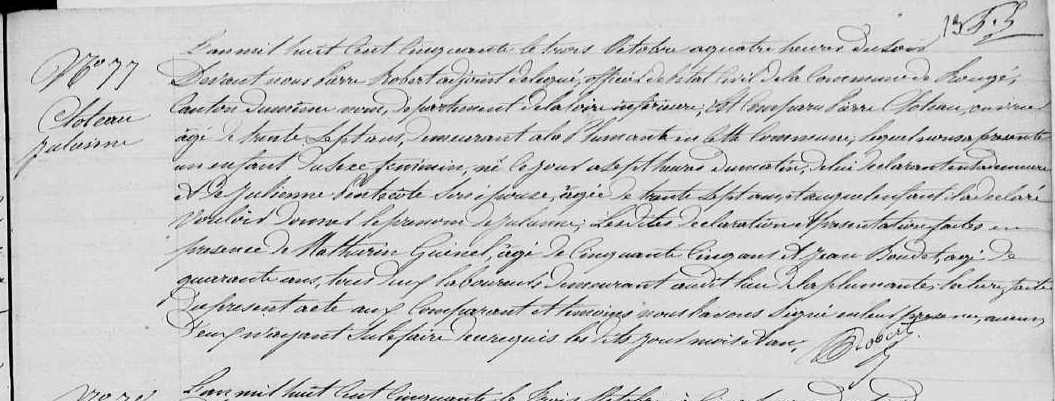 N° 77
Cloteau
Julienne
L'an mil huit cent cinquante le trois Octobre a quatre heures du soir
Devant nous Pierre Robert adjoint delegué, officier de l'état Civil de la Commune de Rougé,
Canton du même nom, departement de la loire inferieure; Est Comparu Pierre Cloteau,
agé de trente Sept ans, demeurant a la Plumante en cette Commune, lequel nous a presenté
un enfant du sexe feminin, né ce jour a sept heures du matin, de lui declarant en sa demeure
Et de Julienne Pentecôte Son épouse, agée de trente Sept ans, et auquel enfant il a declaré
vouloir donner le prenom de Julienne; Les dites declaration et presentation faites en
presence de Mathurin Guinel, âgé de Cinquante Cinq ans et Jean Boudet, agé de
quarante ans, tous deux laboureurs demeurant audit lieu de la plumante; lecture faite
du present acte aux Comparant et temoins nous l'avons Signé en leur presence, aucun
d'eux n'ayant Su le faire de ce requis les dits jour mois et an.
Robert
L'an mil huit Cent Cinquante le trois Octobre